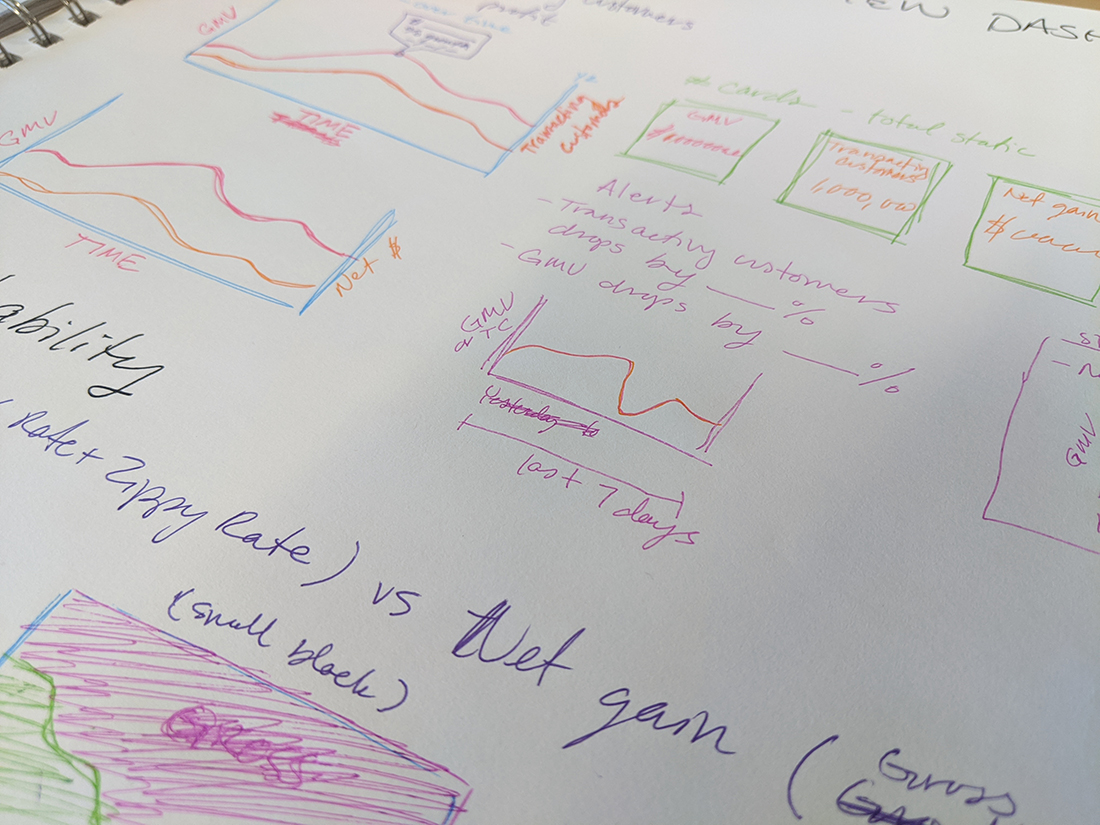 DASH
customers
profit
GMV
TIME
Transacting
customers
# cards - total static
GMV
Transacting
customers
1,000,000
Net gain
$
Alerts
- Transacting customers
drops by ___ %
- GMV drops by ___ %
GMV
TIME
Net $
GMV
Yesterday to
last 7 days
GMV
ability
Rate + Zippy Rate) vs Net gain (Gross
(small block)
GROSS